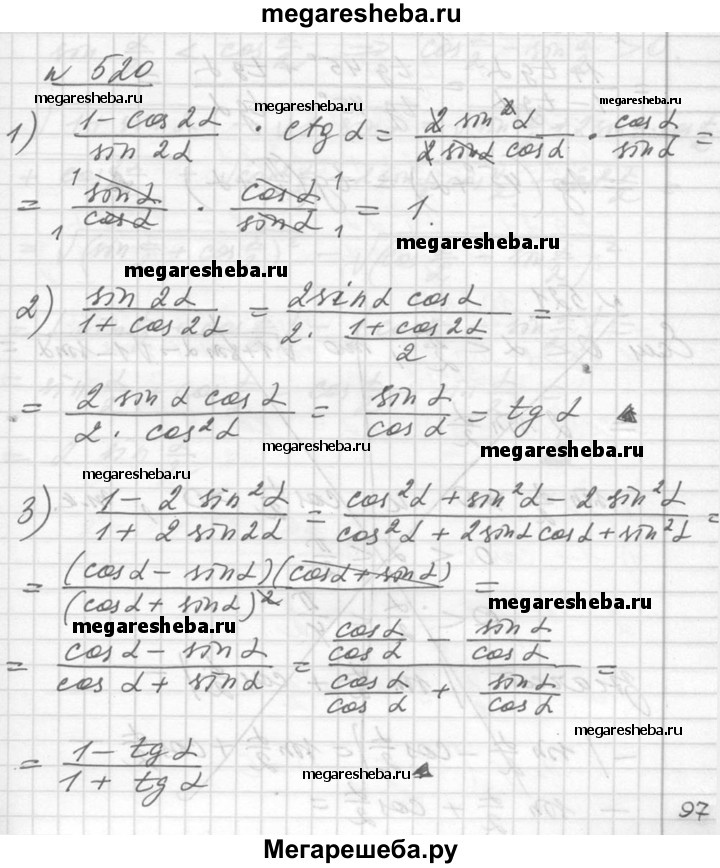 megaresheba.ru
n 520
megaresheba.ru megaresheba.ru megaresheba.ru
1) (1 - cos 2α)/(sin 2α) · ctg α = (2 sin² α)/(2 sin α cos α) · (cos α)/(sin α) =
= ¹ (sin α)/(cos α) ₁ · (cos α)/(sin α) ¹ ₁ = 1.
megaresheba.ru
megaresheba.ru
2) (sin 2α)/(1 + cos 2α) = (2 sin α cos α)/(2 · (1 + cos 2α)/2) =
= (2 sin α cos α)/(2 · cos² α) = (sin α)/(cos α) = tg α
megaresheba.ru megaresheba.ru
megaresheba.ru
3) (1 - 2 sin² α)/(1 + 2 sin 2α) = (cos² α + sin² α - 2 sin² α)/(cos² α + 2 sin α cos α + sin² α) =
= ((cos α - sin α)(cos α + sin α))/((cos α + sin α)²) =
megaresheba.ru megaresheba.ru
= (cos α - sin α)/(cos α + sin α) = ((cos α)/(cos α) - (sin α)/(cos α))/((cos α)/(cos α) + (sin α)/(cos α)) =
megaresheba.ru
= (1 - tg α)/(1 + tg α)
megaresheba.ru
97
Мегарешеба.ru